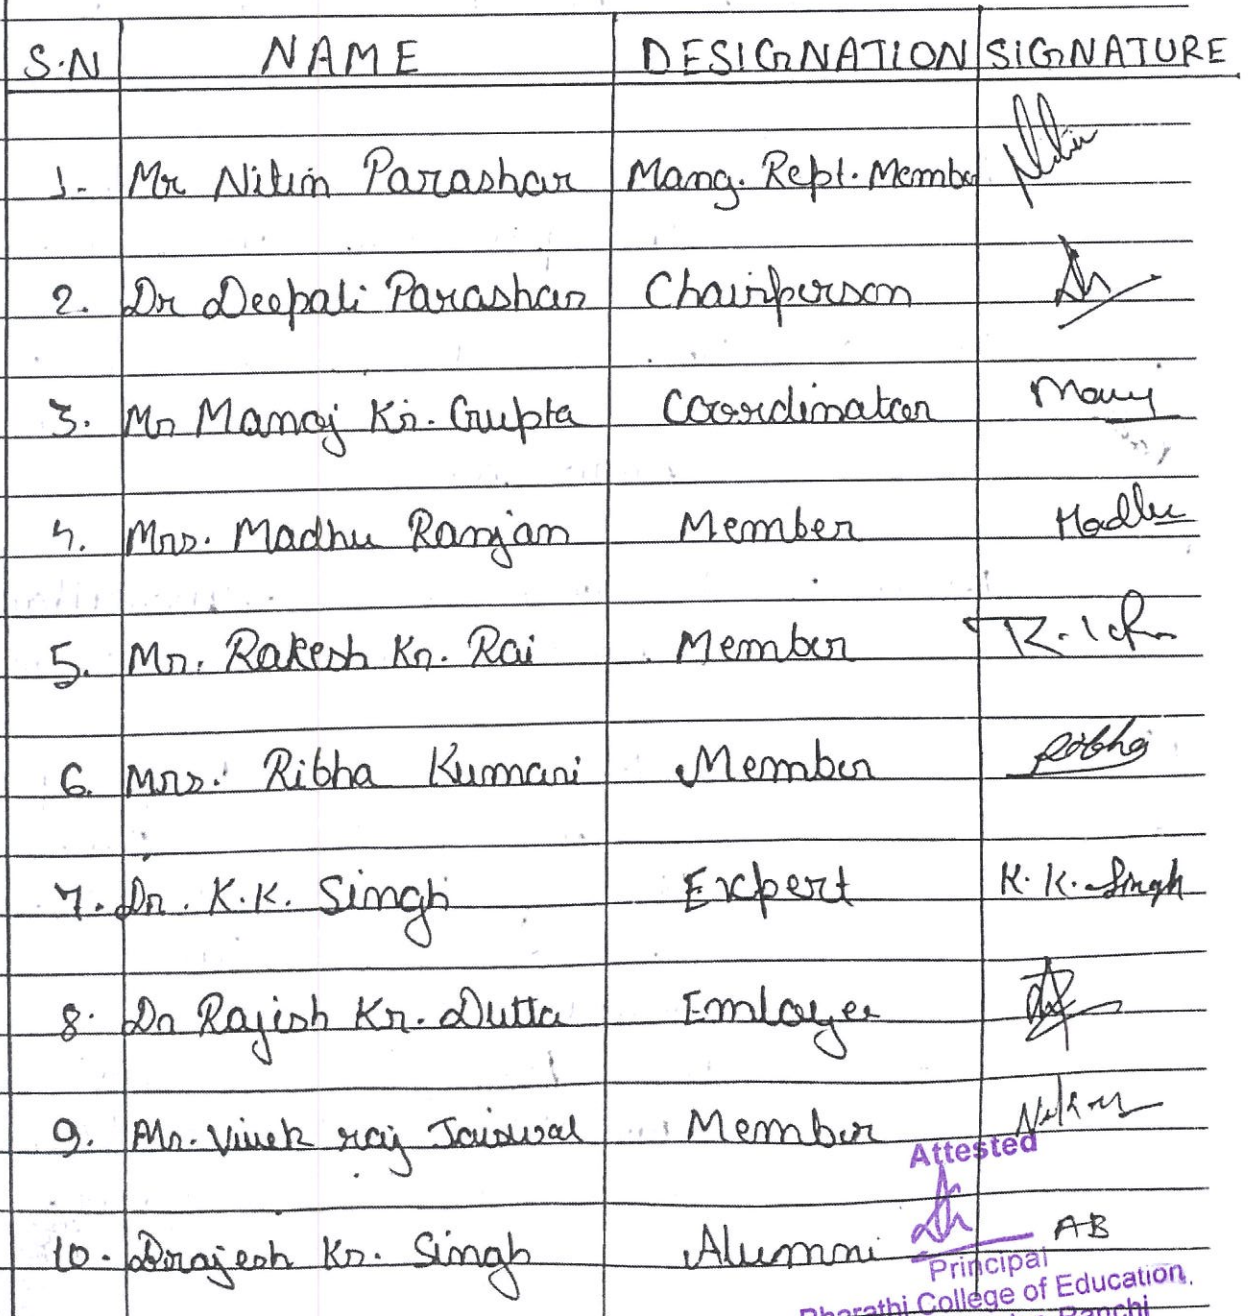 S.N NAME DESIGNATION SIGNATURE
1. Mr Nitin Parashar Mang. Rept. Member
2. Dr Deepali Parashar Chairperson
3. Mr Manoj Kr. Gupta Coordinator Manoj
4. Mrs. Madhu Ranjan Member Madhu
5. Mr. Rakesh Kr. Rai Member
6. Mrs. Ribha Kumari Member Ribha
7. Dr. K.K. Singh Expert K. K. Singh
8. Dr Rajish Kr. Dutta Emloyee
9. Mr. Vivek raj Jaiswal Member
Attested
10. Brajesh Kr. Singh Alumni AB
Principal
Bharathi College of Education,
Ranchi